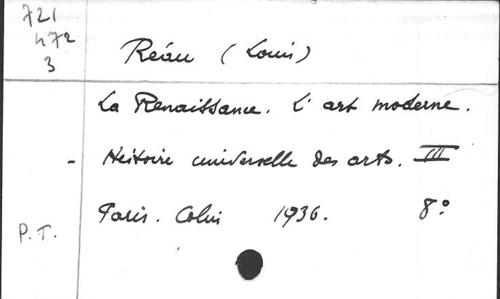 721
472
3
Réau (Louis)
La Renaissance. L'art moderne.
- Histoire universelle des arts. III
Paris. Colin 1936. 8°
P.T.